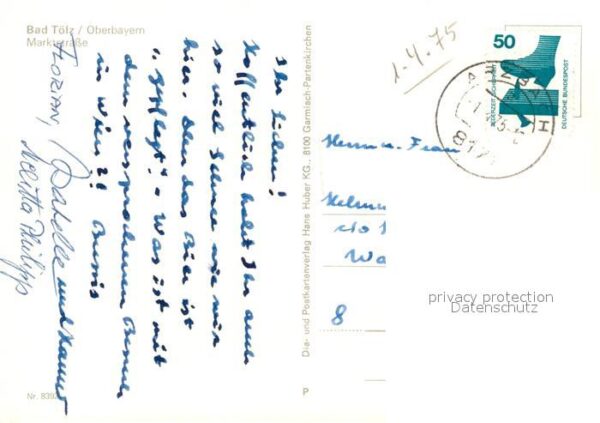 Bad Tölz / Oberbayern
Marktstraße
Ihr Lieben!
Hoffentlich habt Ihr auch
so viel Schnee wie wir
hier. Aber das Bier ist
"gepflegt". Was ist mit
dem versprochenen Besuch
in Wien?! Bussis
und Hannes
FLORIAN,
Melitta Philipp
Nr. 839
Dia- und Postkartenverlag Hans Huber KG., 8100 Garmisch-Partenkirchen
P
1-4.75
50
JEDERZEIT SICHERHEIT
DEUTSCHE BUNDESPOST
817
Herrn u. Frau
Helmu
c/o
Wa
8
privacy protection
Datenschutz